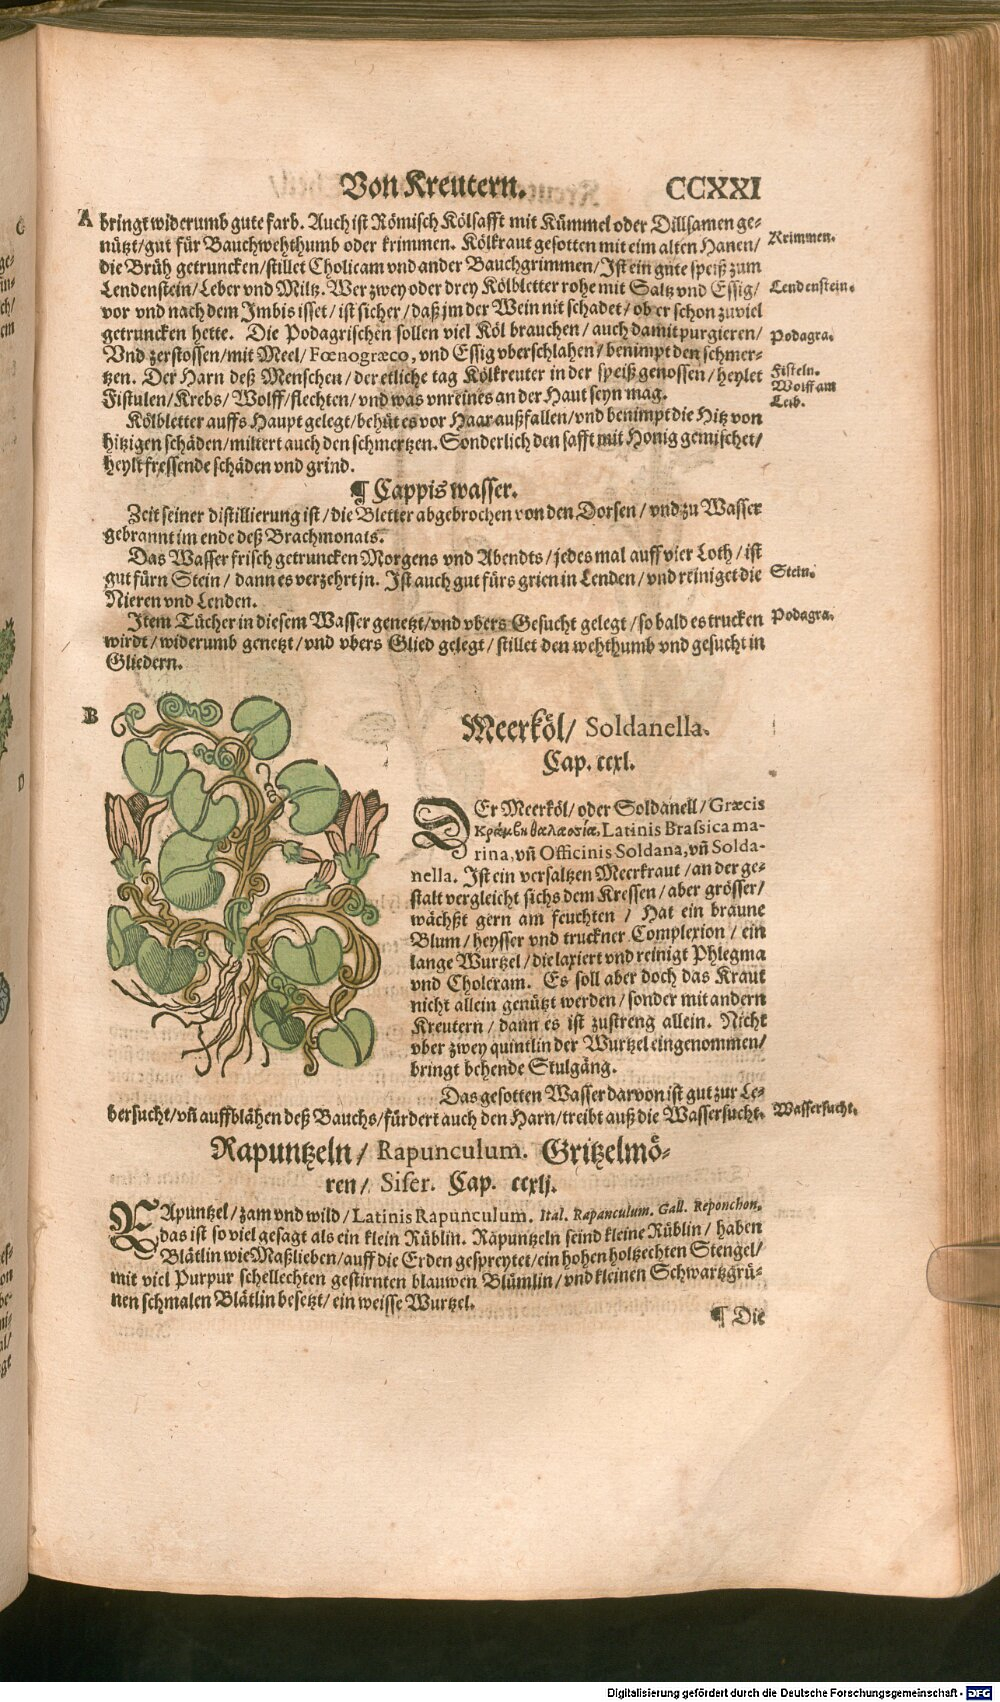 Von Kreutern. CCXXI
A bringt widerumb gute farb. Auch ist Römisch Kölsafft mit Kümmel oder Dillsamen ge-
nützt/gut für Bauchwehthumb oder krimmen. Kölkraut gesotten mit eim alten Hanen/
Krimmen.
die Brüh getruncken/stillet Cholicam vnd ander Bauchgrimmen/Ist ein gute speiß zum
Lendenstein/Leber vnd Miltz. Wer zwey oder drey Kölbletter rohe mit Saltz vnd Essig/
Lendenstein.
vor vnd nach dem Imbis isset/ist sicher/daß jm der Wein nit schadet/ob er schon zuviel
getruncken hette. Die Podagrischen sollen viel Köl brauchen/auch damit purgieren/
Podagra.
Vnd zerstossen/mit Meel/Fœnogræco, vnd Essig vberschlahen/benimpt den schmer-
tzen. Der Harn deß Menschen/der etliche tag Kölkreuter in der speiß genossen/heylet
Fisteln.
Fistulen/Krebs/Wolff/flechten/vnd was vnreines an der Haut seyn mag.
Wolff am
Leib.
Kölbletter auffs Haupt gelegt/behüt es vor Haar außfallen/vnd benimpt die Hitz von
hitzigen schäden/miltert auch den schmertzen. Sonderlich den safft mit Honig gemischet/
heylt fressende schäden vnd grind.
¶ Cappis wasser.
Zeit seiner distillierung ist/die Bletter abgebrochen von den Dorsen/vnd zu Wasser
gebrannt im ende deß Brachmonats.
Das Wasser frisch getruncken Morgens vnd Abendts/jedes mal auff vier Loth/ist
gut fürn Stein/dann es verzehrt jn. Ist auch gut fürs grien in Lenden/vnd reiniget die
Stein.
Nieren vnd Lenden.
Item Tücher in diesem Wasser genetzt/vnd vbers Gesucht gelegt/so bald es trucken
Podagra.
wirdt/widerumb genetzt/vnd vbers Glied gelegt/stillet den wehthumb vnd gesucht in
Gliedern.
B
Meerköl/ Soldanella.
Cap. ccxl.
DEr Meerköl/oder Soldanell/Græcis
Κράμβη θαλασσία, Latinis Brassica ma-
rina, vñ Officinis Soldana, vñ Solda-
nella. Ist ein versaltzen Meerkraut/an der ge-
stalt vergleicht sichs dem Kressen/aber grösser/
wächßt gern am feuchten/Hat ein braune
Blum/heysser vnd truckner Complexion/ein
lange Wurtzel/die laxiert vnd reinigt Phlegma
vnd Choleram. Es soll aber doch das Kraut
nicht allein genützt werden/sonder mit andern
Kreutern/dann es ist zustreng allein. Nicht
vber zwey quintlin der Wurtzel eingenommen/
bringt behende Stulgäng.
Das gesotten Wasser darvon ist gut zur Le-
bersucht/vñ auffblähen deß Bauchs/fürdert auch den Harn/treibt auß die Wassersucht.
Wassersucht.
Rapuntzeln/ Rapunculum. Gritzelmö-
ren/ Siser. Cap. ccxlj.
RApuntzel/zam vnd wild/Latinis Rapunculum. Ital. Rapanculum. Gall. Reponchon.
das ist so viel gesagt als ein klein Rüblin. Rapuntzeln seind kleine Rüblin/haben
Blätlin wie Maßlieben/auff die Erden gespreytet/ein hohen holtzechten Stengel/
mit viel Purpur schellechten gestirnten blauwen Blümlin/vnd kleinen Schwartzgrü-
nen schmalen Blätlin besetzt/ein weisse Wurtzel.
¶ Die
Digitalisierung gefördert durch die Deutsche Forschungsgemeinschaft - DFG